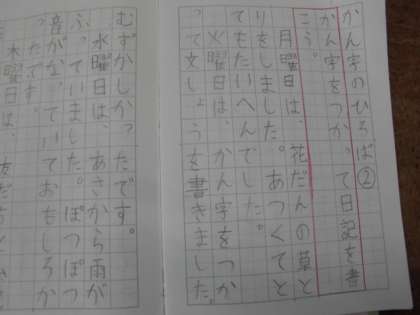 かん字のひろば②
かん字をつかって日記を書
こう。
月曜日は、花だんの草と
りをしました。あつくてと
てもたいへんでした。
火曜日は、かん字をつか
って文しょうを書きました
むずかしかったです。
水曜日は、あさから雨が
ふっていました。ぽつぽつ
音がなっていておもしろか
ったです。
木曜日は、友だちと